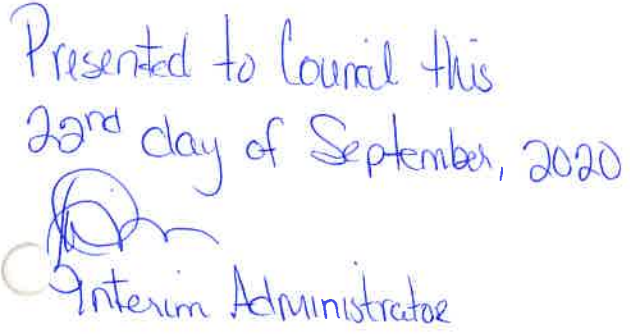 Presented to Council this
22nd day of September, 2020
Interim Administrator